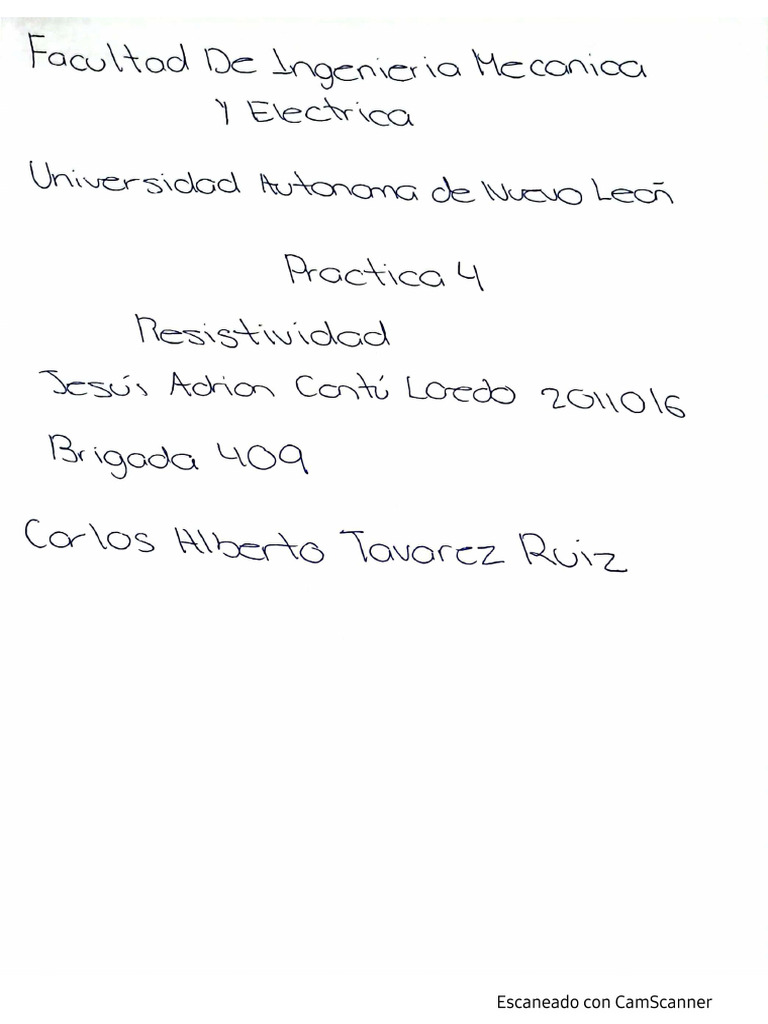 Facultad De Ingenieria Mecanica
Y Electrica
Universidad Autonoma de Nuevo Leoñ
Practica 4
Resistividad
Jesús Adrian Cantú Loredo 2011016
Brigada 409
Carlos Alberto Tavarez Ruiz
Escaneado con CamScanner